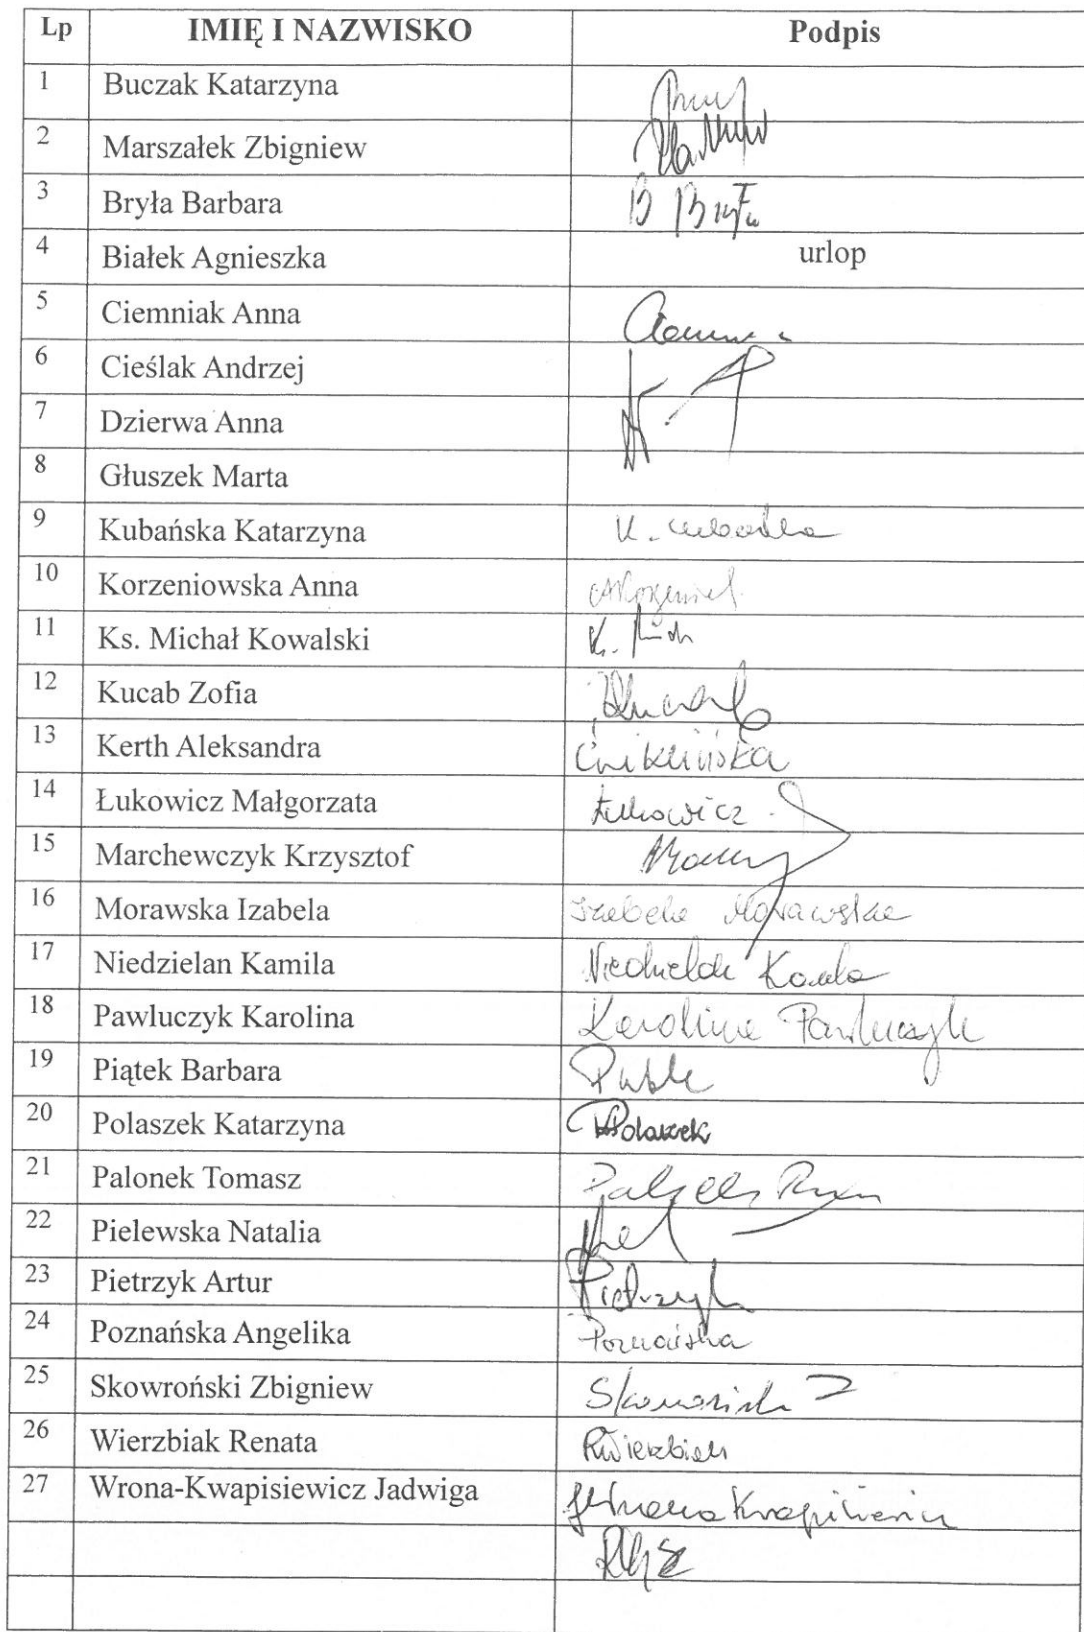 Lp IMIĘ I NAZWISKO Podpis
1 Buczak Katarzyna
2 Marszałek Zbigniew
3 Bryła Barbara B Bryła
4 Białek Agnieszka urlop
5 Ciemniak Anna
6 Cieślak Andrzej
7 Dzierwa Anna
8 Głuszek Marta
9 Kubańska Katarzyna K.
10 Korzeniowska Anna
11 Ks. Michał Kowalski
12 Kucab Zofia
13 Kerth Aleksandra Ćwiklińska
14 Łukowicz Małgorzata Łukowicz
15 Marchewczyk Krzysztof
16 Morawska Izabela Izabela Morawska
17 Niedzielan Kamila Kamila
18 Pawluczyk Karolina Karolina Pawluczyk
19 Piątek Barbara
20 Polaszek Katarzyna KPolaszek
21 Palonek Tomasz
22 Pielewska Natalia
23 Pietrzyk Artur Pietrzyk
24 Poznańska Angelika Poznańska
25 Skowroński Zbigniew
26 Wierzbiak Renata RWierzbiak
27 Wrona-Kwapisiewicz Jadwiga